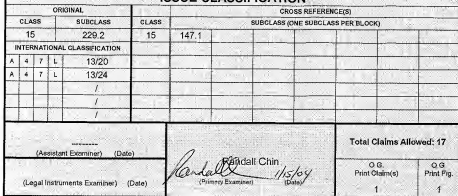 ISSUE CLASSIFICATION
ORIGINAL CROSS REFERENCE(S)
CLASS SUBCLASS CLASS SUBCLASS (ONE SUBCLASS PER BLOCK)
15 229.2 15 147.1
INTERNATIONAL CLASSIFICATION
A 4 7 L 13/20
A 4 7 L 13/24
/
/
/
--------
(Assistant Examiner) (Date)
Randall Chin
Randall Chin 1/15/04
(Primary Examiner) (Date)
(Legal Instruments Examiner) (Date)
Total Claims Allowed: 17
O.G. Print Claim(s) O.G. Print Fig.
1 1